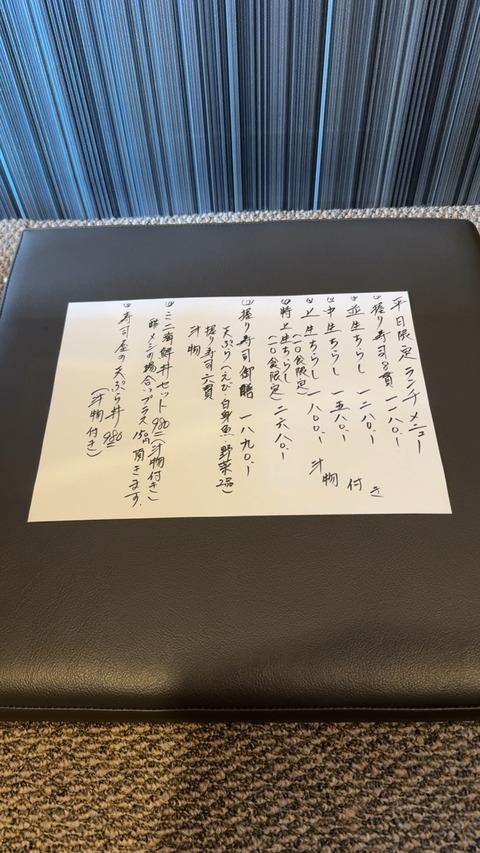 平日限定ランチメニュー
○握り寿司8貫 一一八〇.ー
○並生ちらし 一二八〇.ー
○中生ちらし 一五八〇.ー
○上生ちらし 一八〇〇.ー
(一〇食限定)
汁物付き
○特上生ちらし 二六八〇.ー
(一〇食限定)
○握り寿司御膳 一八九〇.ー
天ぷら(えび・白身魚・野菜2品)
握り寿司六貫
汁物
○ミニ海鮮丼セット 980ー(汁物付き)
酢メシの場合、プラス150円頂きます.
○寿司屋の天ぷら丼 980ー
(汁物付き)